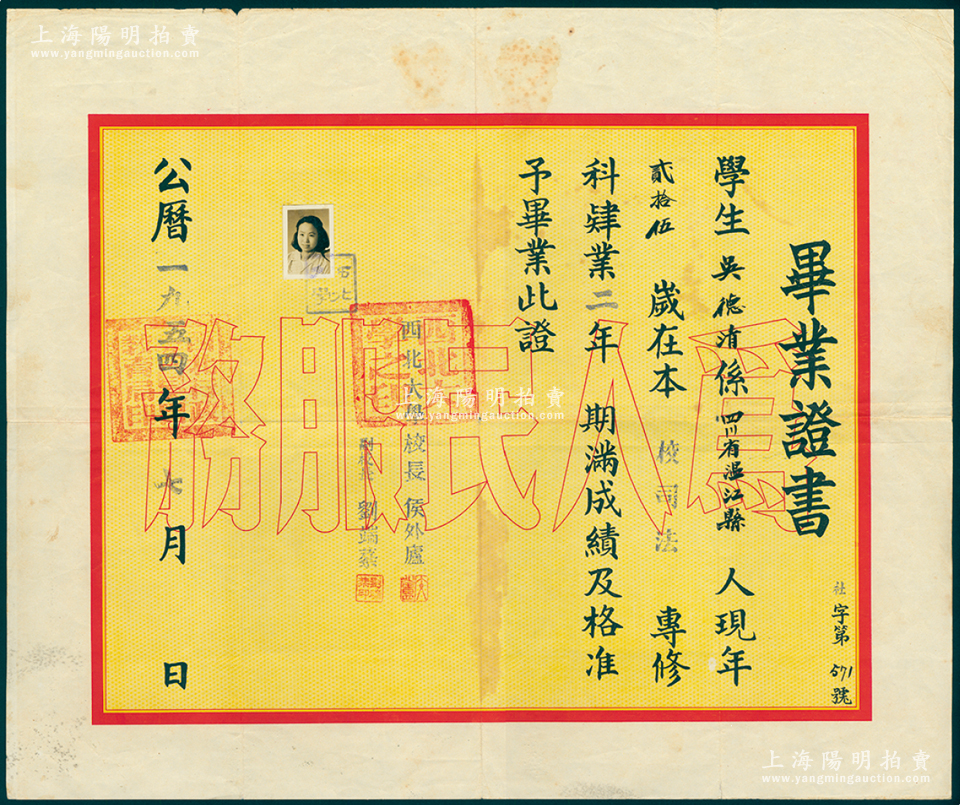 上海陽明拍賣
www.yangmingauction.com
畢業證書
社字第571號
學生吳德清係四川省溫江縣人現年
貳拾伍歲在本校司法專修
科肄業二年期滿成績及格准
予畢業此證
為人民服務
西北大學校長侯外廬
副校長劉端棻
公曆一九五四年七月日
上海陽明拍賣
www.yangmingauction.com
上海陽明拍賣
www.yangmingauction.com